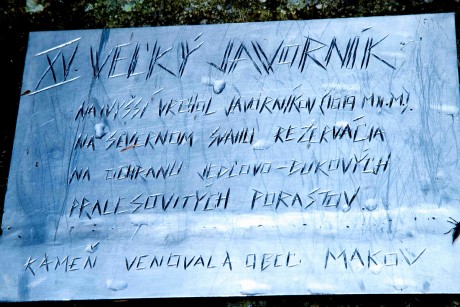 XV. VEĽKÝ JAVORNÍK
NAJVYŠŠÍ VRCHOL JAVORNÍKOV (1019 M.N.M.)
NA SEVERNOM SVAHU REZERVÁCIA
NA OCHRANU JEDĽOVO-BUKOVÝCH
PRALESOVITÝCH PORASTOV.
KAMEŇ VENOVALA OBEC MAKOV